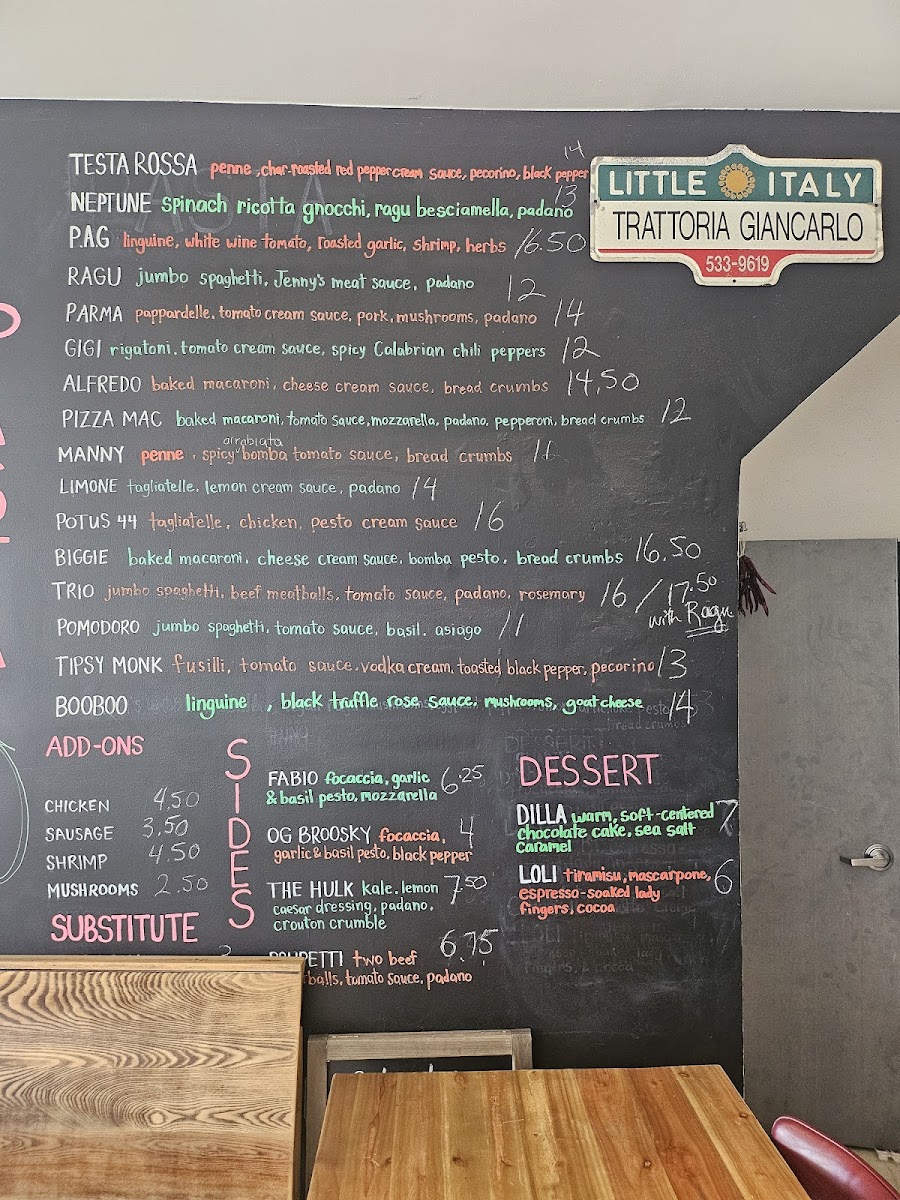 TESTA ROSSA penne, char-roasted red pepper cream sauce, pecorino, black pepper 14
NEPTUNE spinach ricotta gnocchi, ragu besciamella, padano 13
P.A.G linguine, white wine tomato, roasted garlic, shrimp, herbs 16.50
RAGU jumbo spaghetti, Jenny's meat sauce, padano 12
PARMA pappardelle, tomato cream sauce, pork, mushrooms, padano 14
GIGI rigatoni, tomato cream sauce, spicy Calabrian chili peppers 12
ALFREDO baked macaroni, cheese cream sauce, bread crumbs 14.50
PIZZA MAC baked macaroni, tomato sauce, mozzarella, padano, pepperoni, bread crumbs 12
MANNY penne, spicy arrabiata bomba tomato sauce, bread crumbs
LIMONE tagliatelle, lemon cream sauce, padano 14
POTUS 44 tagliatelle, chicken, pesto cream sauce 16
BIGGIE baked macaroni, cheese cream sauce, bomba pesto, bread crumbs 16.50
TRIO jumbo spaghetti, beef meatballs, tomato sauce, padano, rosemary 16 / 17.50
with Ragu
POMODORO jumbo spaghetti, tomato sauce, basil, asiago 11
TIPSY MONK fusilli, tomato sauce, vodka cream, toasted black pepper, pecorino 13
BOOBOO linguine, black truffle rose sauce, mushrooms, goat cheese 14
LITTLE ITALY
TRATTORIA GIANCARLO
533-9619
ADD-ONS
CHICKEN 4.50
SAUSAGE 3.50
SHRIMP 4.50
MUSHROOMS 2.50
SUBSTITUTE
SIDES
FABIO focaccia, garlic 6.25
& basil pesto, mozzarella
OG BROOSKY focaccia, 4
garlic & basil pesto, black pepper
THE HULK kale, lemon 7.50
caesar dressing, padano,
crouton crumble
two beef 6.75
balls, tomato sauce, padano
DESSERT
DILLA warm, soft-centered 7
chocolate cake, sea salt
caramel
LOLI tiramisu, mascarpone, 6
espresso-soaked lady
fingers, cocoa